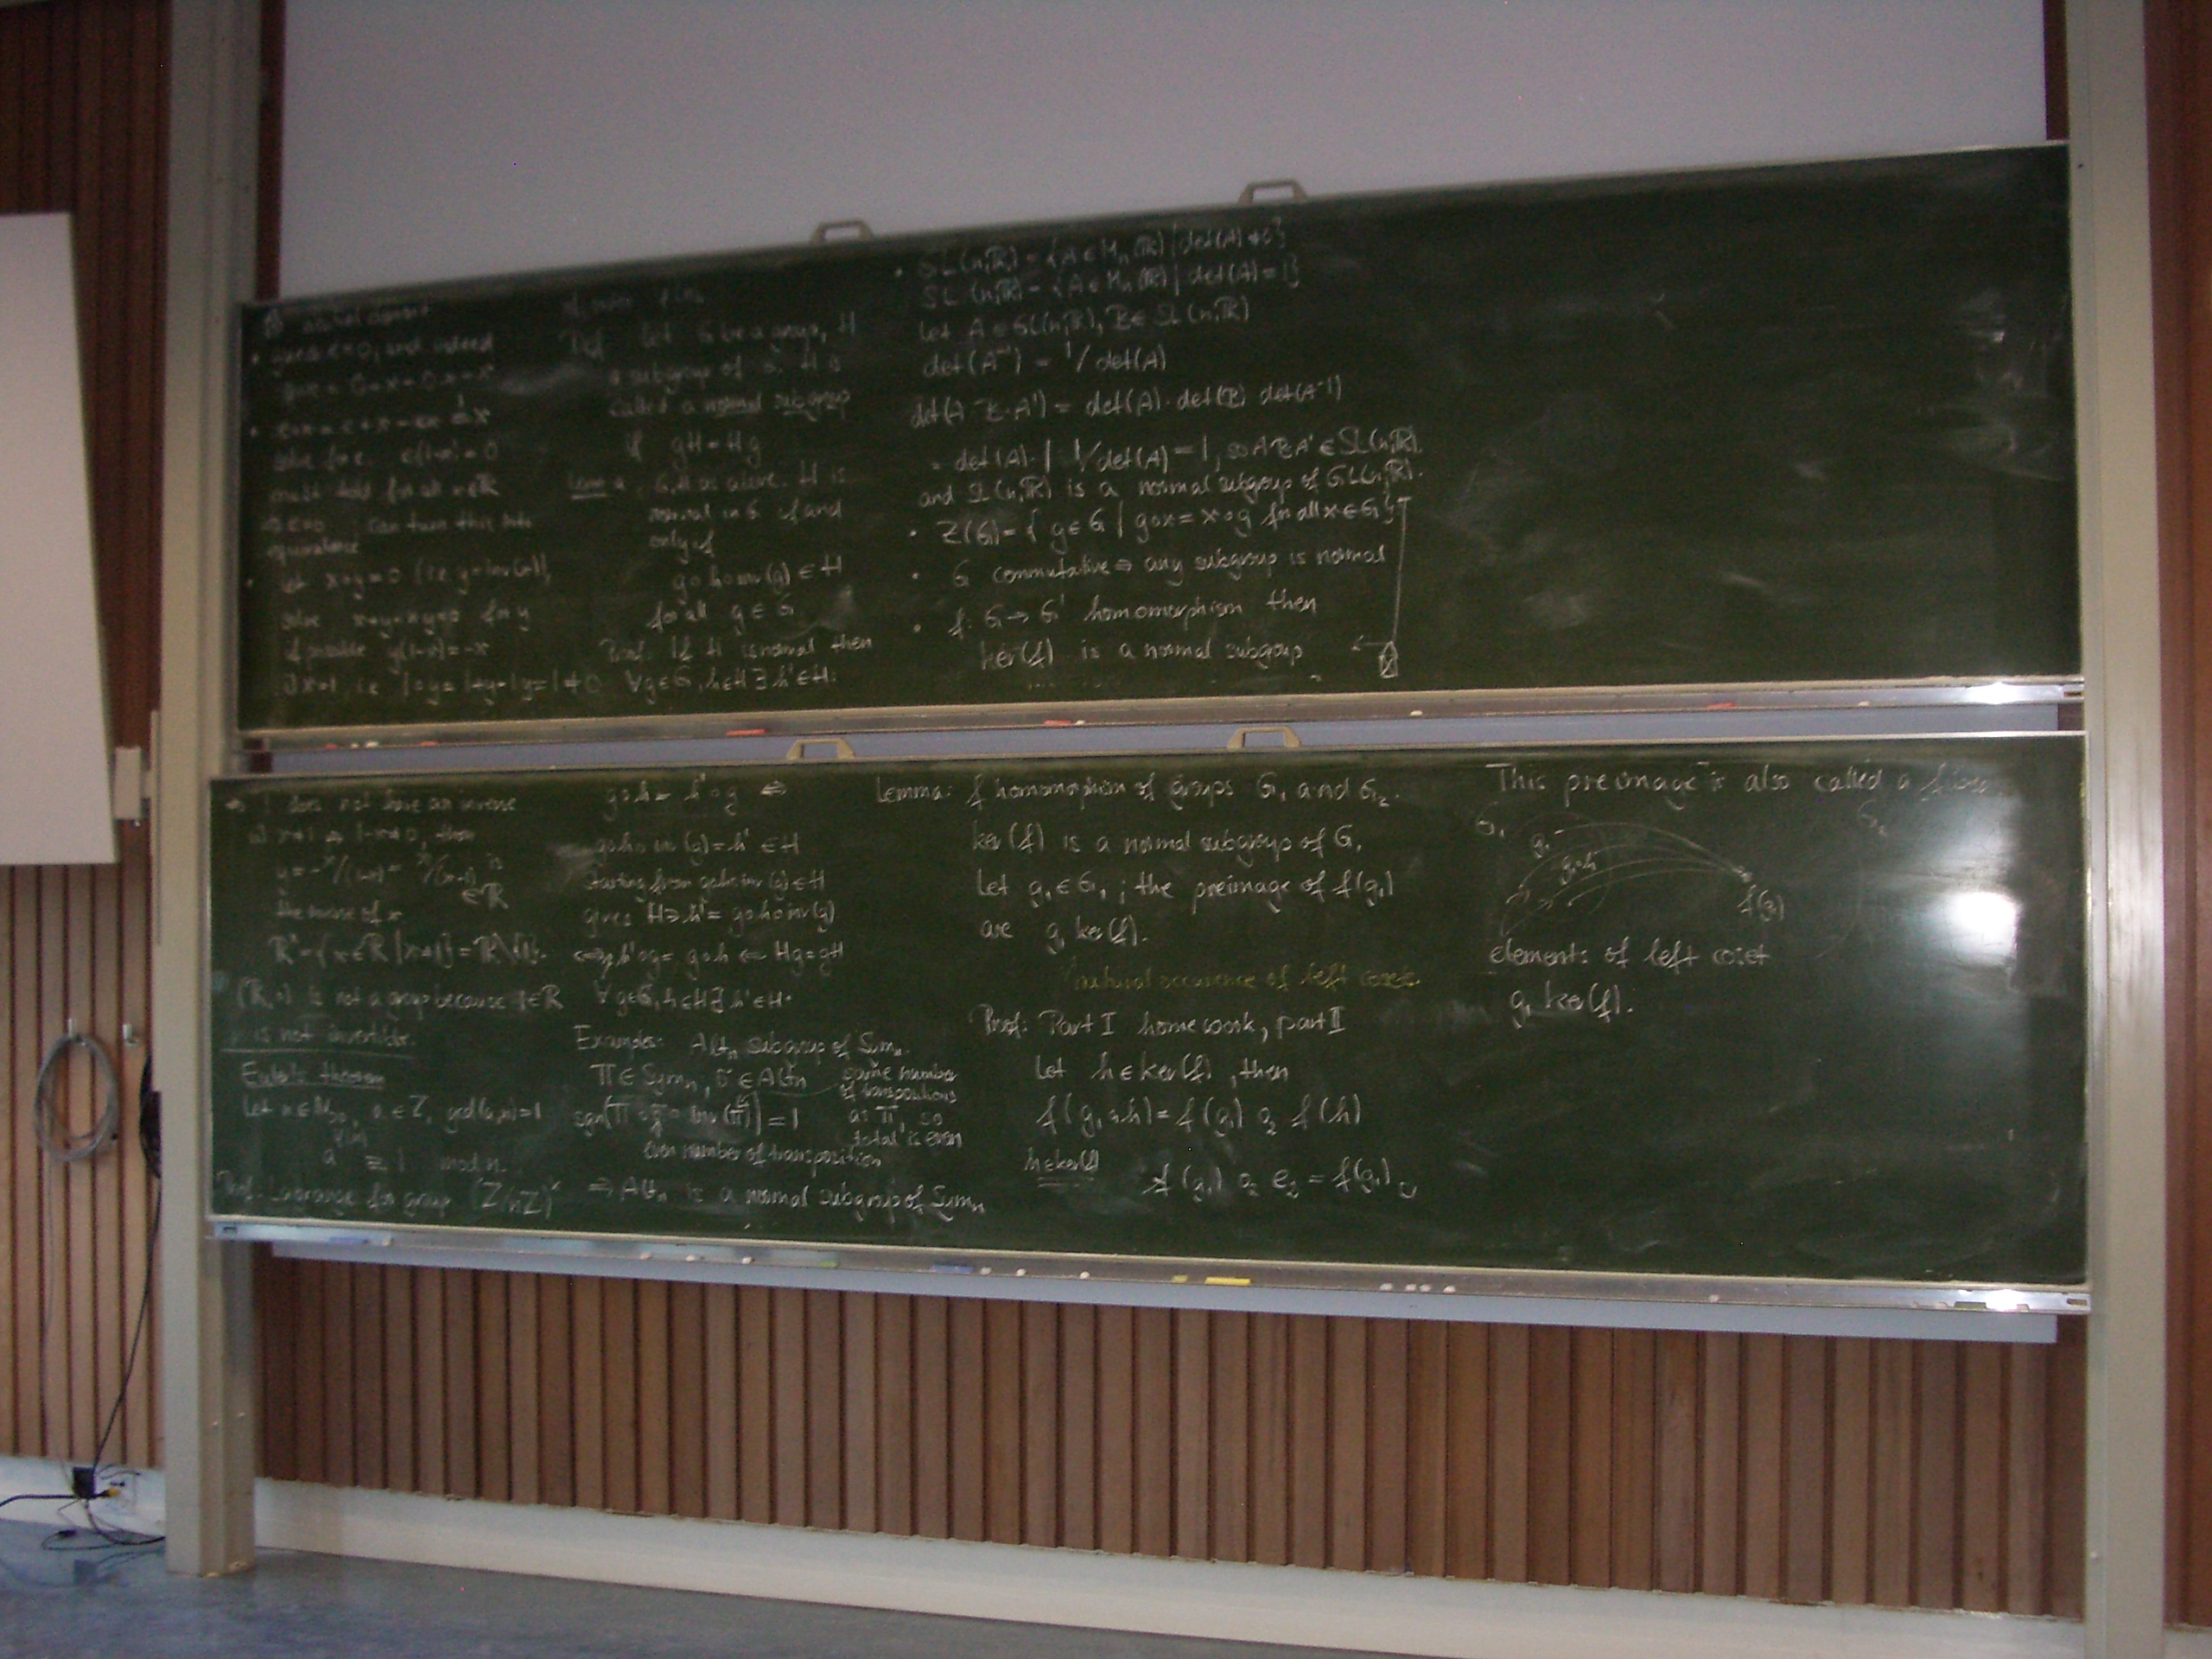 neutral element
• guess e=0, and indeed
0∘x = 0+x-0·x=x
• e∘x = e+x-ex = x
solve for e: e(1-x)=0
must hold for all x∈ℝ
⇒ e=0. Can turn this into
equivalence
• Let x∘y=0 (i.e. y=inv(x)),
solve x+y-xy=0 for y
if possible y(1-x)=-x
if x=1, i.e. 1∘y=1+y-1y=1≠0
Def. Let G be a group, H
a subgroup of G. H is
called a normal subgroup
if gH=Hg
Lemma: G,H as above. H is
normal in G if and
only if
g∘h∘inv(g) ∈ H
for all g ∈ G
Proof: If H is normal then
∀g∈G, h∈H ∃ h'∈H:
• GL(n,ℝ) = {A ∈ Mₙ(ℝ) | det(A)≠0}
SL(n,ℝ) = {A ∈ Mₙ(ℝ) | det(A)=1}
Let A ∈ GL(n,ℝ), B ∈ SL(n,ℝ)
det(A⁻¹) = 1/det(A)
det(A·B·A⁻¹) = det(A)·det(B) det(A⁻¹)
= det(A)·1 1/det(A) = 1, so A·B·A⁻¹ ∈ SL(n,ℝ).
and SL(n,ℝ) is a normal subgroup of GL(n,ℝ).
• Z(G)= { g∈G | g∘x = x∘g for all x∈G }
• G commutative ⇒ any subgroup is normal
• f: G → G' homomorphism then
ker(f) is a normal subgroup
⇒ 1 does not have an inverse
if x≠1 ⇒ 1-x≠0, then
y = -x/(1-x) = x/(x-1) is
∈ℝ
the inverse of x
ℝ' = {x∈ℝ | x≠1} = ℝ\{1}.
(ℝ,∘) is not a group because 1∈ℝ
is not invertible.
Euler's theorem
Let n∈ℕ>0, a∈ℤ, gcd(a,n)=1
a^φ(n) ≡ 1 mod n.
Proof: Lagrange for group (ℤ/nℤ)ˣ
g∘h = h'∘g ⇔
g∘h∘inv(g) = h' ∈ H
starting from g∘h∘inv(g) ∈ H
gives H∋h' = g∘h∘inv(g)
⇔ h'∘g = g∘h ⇐ Hg=gH
∀g∈G, h∈H ∃ h'∈H.
Examples: Altₙ subgroup of Symₙ.
π ∈ Symₙ, σ ∈ Altₙ same number
of transpositions
sgn(π∘σ∘inv(π)) = 1 as π, so
total is even
even number of transposition
⇒ Altₙ is a normal subgroup of Symₙ
Lemma: f homomorphism of groups G₁ and G₂.
ker(f) is a normal subgroup of G₁
Let g₁∈G₁; the preimage of f(g₁)
are g₁ ker(f).
natural occurence of left cosets.
Proof: Part I homework, part II
Let h∈ker(f), then
f(g₁∘₁h) = f(g₁) ∘₂ f(h)
h∈ker(f) = f(g₁) ∘₂ e₂ = f(g₁)
This preimage is also called a fibre
G₁ G₂
g₁
g₁∘h
f(g₁)
elements of left coset
g₁ ker(f).